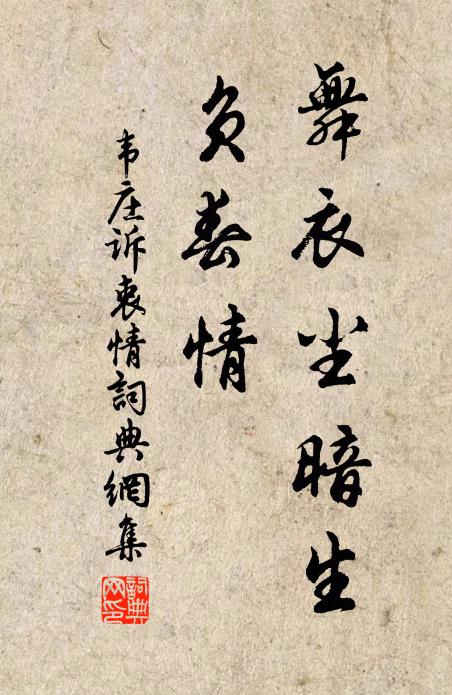 舞衣尘暗生
负春情
韦庄诉衷情词典網集
詞典网印